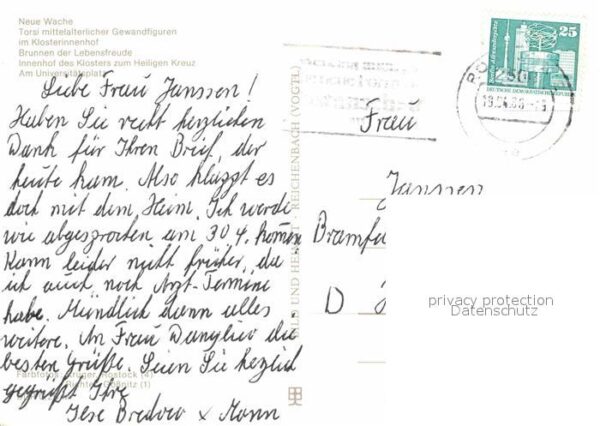 Neue Wache
Torsi mittelalterlicher Gewandfiguren
im Klosterinnenhof
Brunnen der Lebensfreude
Innenhof des Klosters zum Heiligen Kreuz
Am Universitätsplatz
Liebe Frau Janssen!
Haben Sie recht herzlichen
Dank für Ihren Brief, der
heute kam. Also klappt es
doch mit dem Heim. Ich werde
wie abgesprochen am 30.4. kommen
Kann leider nicht früher, da
ich auch noch Arzt-Termine
habe. Mündlich dann alles
weitere. An Frau die
besten Grüße. Seien Sie herzlich
gegrüßt Ihre
Ilse Bredow + Mann
Farbfotos: Krüger, Rostock (4)
(1)
BILD UND HEIMAT · REICHENBACH (VOGTL
25
DEUTSCHE DEMOKRATISCHE REPUBLIK
250
Frau
Janssen
Bramfe
D
privacy protection
Datenschutz